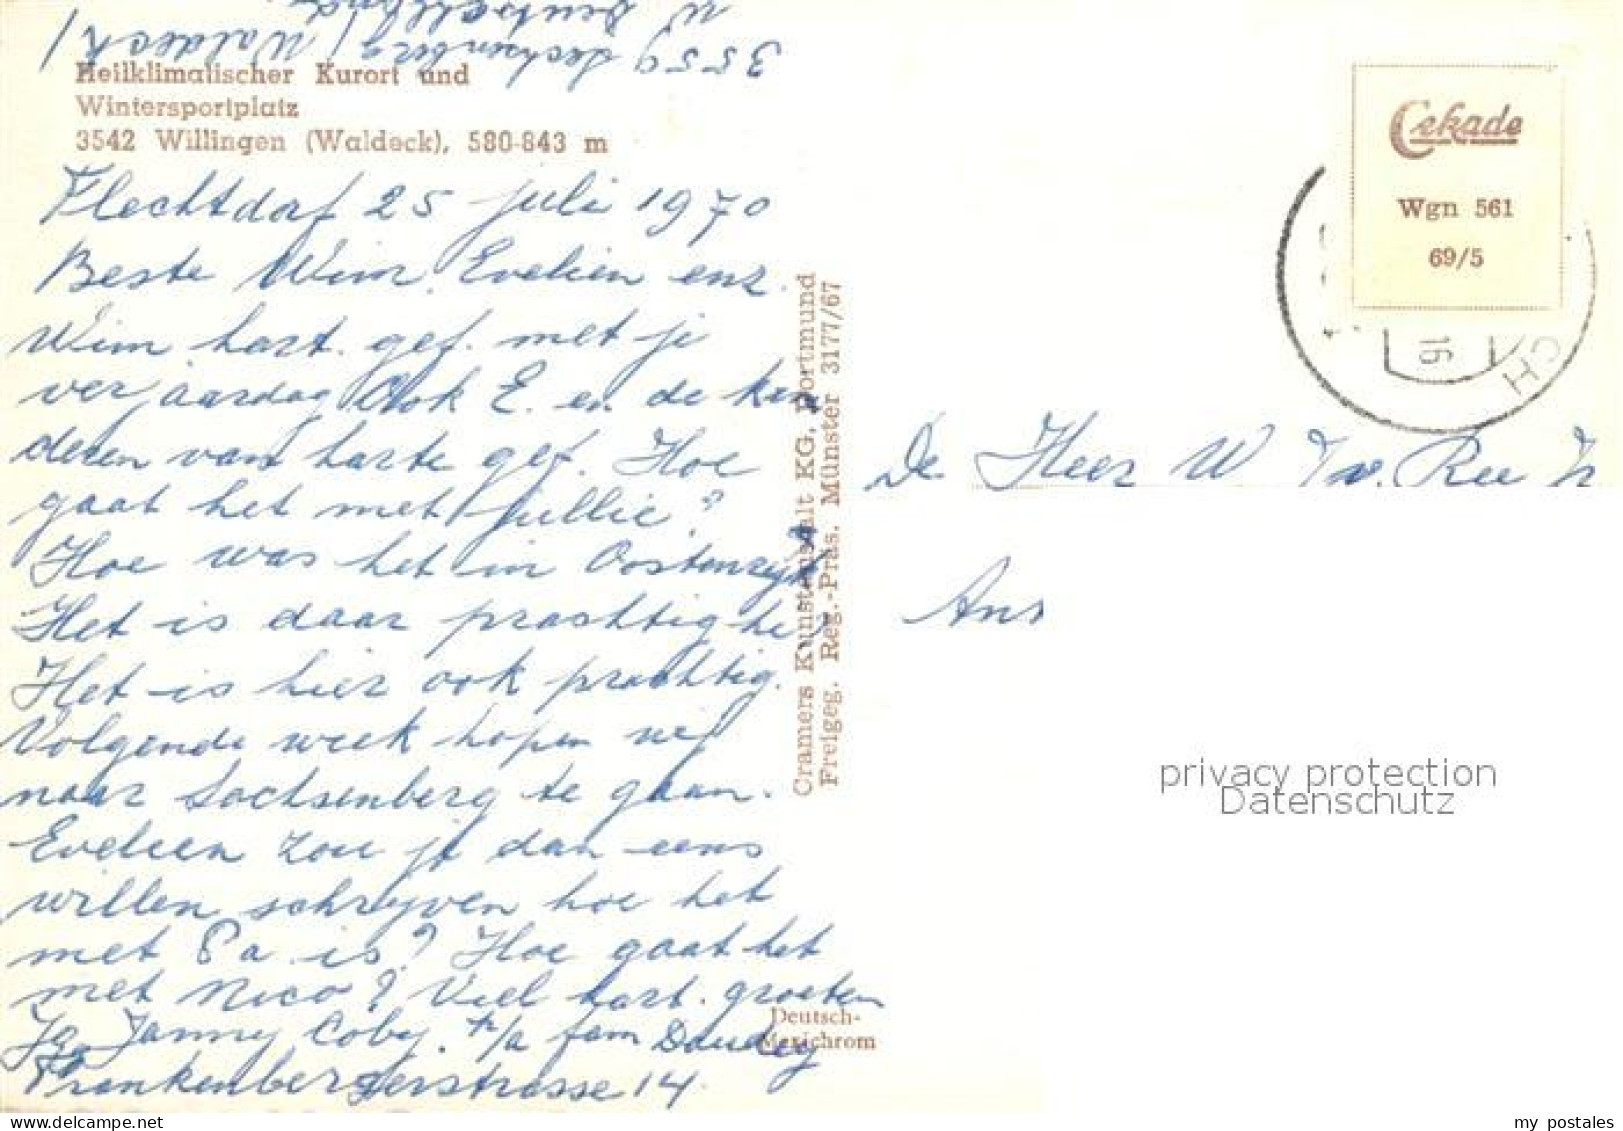 Heilklimatischer Kurort und
Wintersportplatz
3542 Willingen (Waldeck), 580-843 m
Flechtdorf 25 juli 1970
Beste Wim, Evelien enz.
Wim hart. gef. met je
verjaardag Ook E. en de kin
deren van harte gef. Hoe
gaat het met jullie?
Hoe was het in Oostenrijk
Het is daar prachtig hè
Het is hier ook prachtig.
Volgende week hopen wij
naar Sachsenberg te gaan.
Evelien zou je dan eens
willen schrijven hoe het
met Pa is? Hoe gaat het
met Nico? Veel hart. groeten
Janny Coby. p/a fam
Frankenbergerstrasse 14.
3559 Sachsenberg (Waldeck)
W Deutschland
Cramers Kunstanstalt KG, Dortmund
Freigeg. Reg.-Präs. Münster 3177/67
Deutsch-
Mexichrom
Cekade
Wgn 561
69/5
16
CH
De Heer W
Ans
privacy protection
Datenschutz
my postales